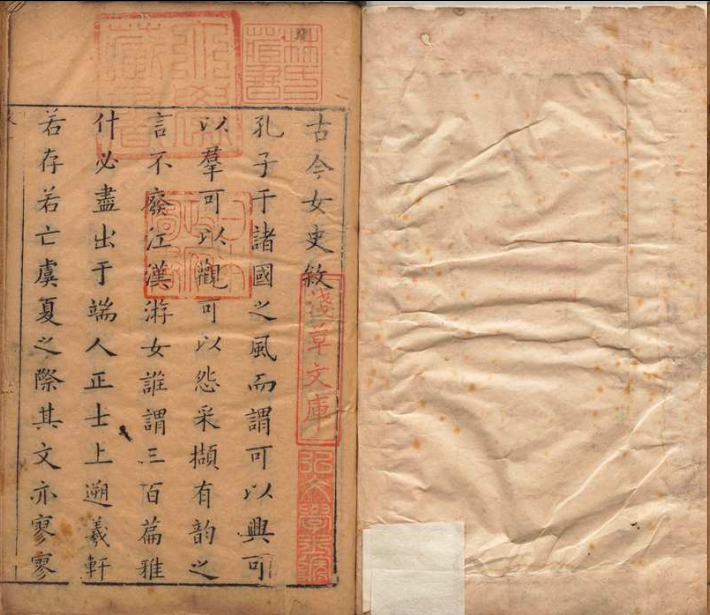 古今女史敘
孔子于諸國之風而謂可以興可
以羣可以觀可以怨采擷有韵之
言不廢江漢游女誰謂三百篇雅
什必盡出于端人正士上遡羲軒
若存若亡虞夏之際其文亦寥寥
林氏藏書
淺草文庫